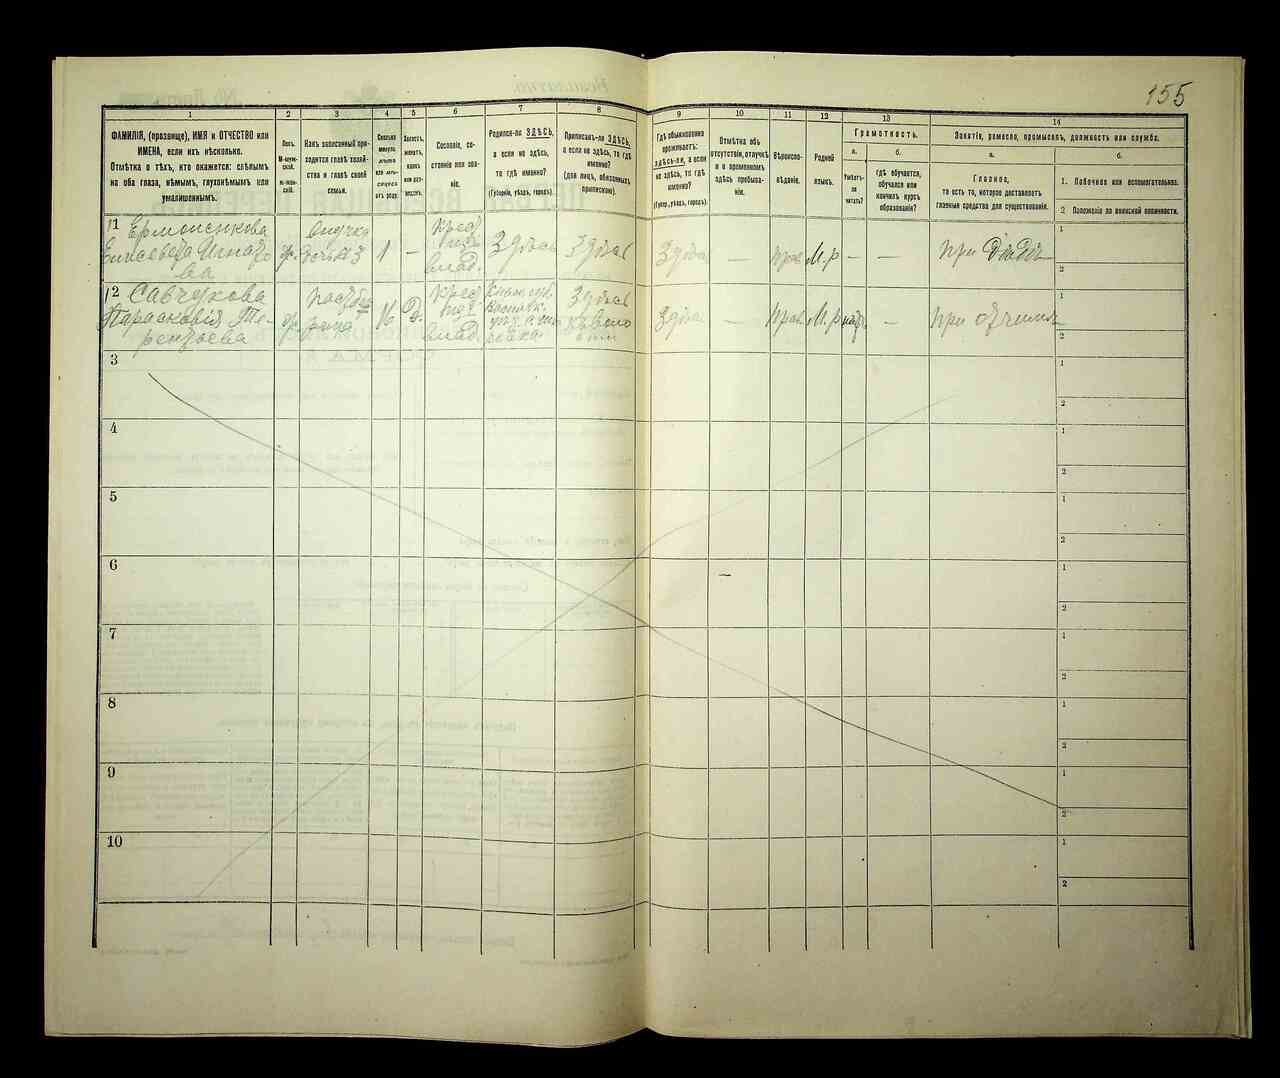 155
1
2
3
4
5
6
7
8
9
10
11
12
13
14
ФАМИЛІЯ, (прозвище), ИМЯ и ОТЧЕСТВО или
ИМЕНА, если ихъ нѣсколько.
Отмѣтка о тѣхъ, кто окажется: слѣпымъ
на оба глаза, нѣмымъ, глухонѣмымъ или
умалишеннымъ.
Полъ.
М-мужской.
Ж-женскій.
Какъ записанный приходится главѣ хозяйства и главѣ своей
семьи.
Сколько
минуло
лѣтъ
или мѣсяцевъ
отъ роду.
Холостъ,
женатъ,
вдовъ
или разведенъ.
Сословіе, состояніе или званіе.
Родился-ли ЗДѢСЬ,
а если не здѣсь,
то гдѣ именно?
(Губернія, уѣздъ, городъ).
Приписанъ-ли ЗДѢСЬ,
а если не здѣсь, то гдѣ
именно?
(для лицъ, обязанныхъ
припискою).
Гдѣ обыкновенно
проживаетъ:
здѣсь-ли, а если
не здѣсь, то гдѣ
именно?
(Губер., уѣздъ, городъ).
Отмѣтка объ
отсутствіи, отлучкѣ
и о временномъ
здѣсь пребываніи.
Вѣроисповѣданіе.
Родной
языкъ.
Грамотность.
а.
Умѣетъ-ли
читать?
б.
гдѣ обучается,
обучался или
кончилъ курсъ
образованія?
Занятіе, ремесло, промыселъ, должность или служба.
а.
Главное,
то есть то, которое доставляетъ
главныя средства для существованія.
б.
1. Побочное или вспомогательное.
2 Положеніе по воинской повинности.
11 Ермоленкова
Елисавета Игнатова
ж.
Внучка
дочь
1
—
Крес
влад.
Здѣсь
Здѣсь
Здѣсь
—
Прав
М.р
—
—
при Дядѣ
1
2
12 Савчукова
Парасковія Терентьева
ж.
16
Д.
Крес
влад.
Здѣсь
Здѣсь
—
Прав
М.р
при отчимѣ
1
2
3
1
2
4
1
2
5
1
2
6
1
2
7
1
2
8
1
2
9
1
2
10
1
2